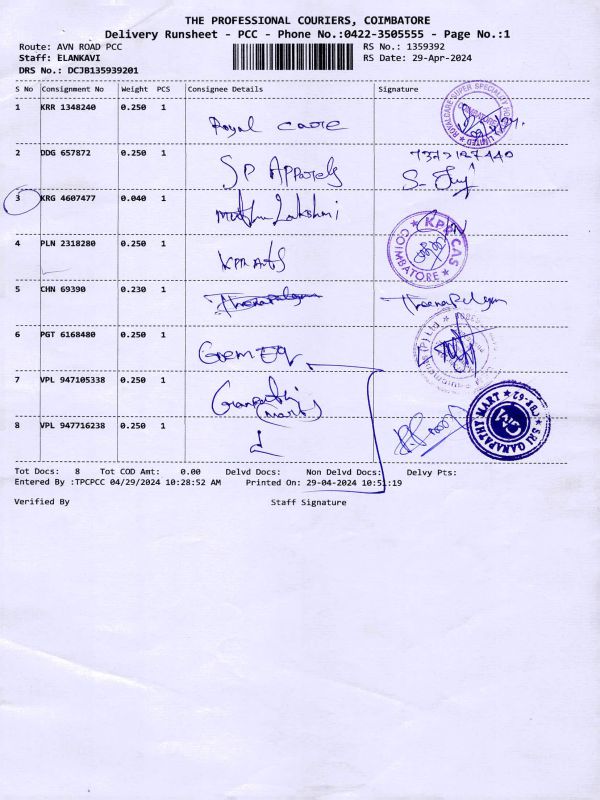 THE PROFESSIONAL COURIERS, COIMBATORE
Delivery Runsheet - PCC - Phone No.:0422-3505555 - Page No.:1
Route: AVN ROAD PCC RS No.: 1359392
Staff: ELANKAVI RS Date: 29-Apr-2024
DRS No.: DCJB135939201
S No Consignment No Weight PCS Consignee Details Signature
1 KRR 1348240 0.250 1 Royal care
2 DDG 657872 0.250 1 SP Apparels 7373127440
3 KRG 4607477 0.040 1 Muthu Lakshmi
4 PLN 2318280 0.250 1 KPR Arts KPR CAS COIMBATORE
5 CHN 69390 0.230 1
6 PGT 6168480 0.250 1 Gem
7 VPL 947105338 0.250 1 Ganpathi (Mart) SRI GANAPATHY MART
8 VPL 947716238 0.250 1
Tot Docs: 8 Tot COD Amt: 0.00 Delvd Docs: Non Delvd Docs: Delvy Pts:
Entered By :TPCPCC 04/29/2024 10:28:52 AM Printed On: 29-04-2024 10:51:19
Verified By Staff Signature